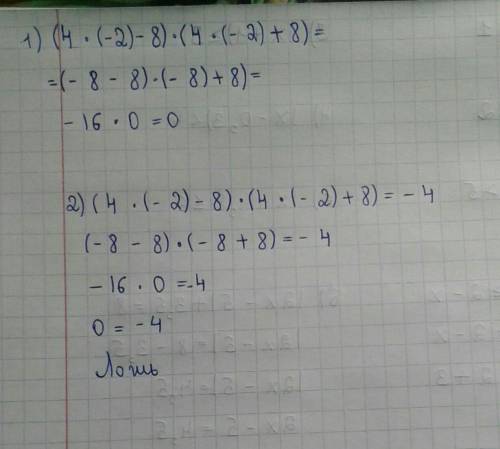 1) (4 · (-2) - 8) · (4 · (-2) + 8) =
= (- 8 - 8) · (- 8) + 8) =
- 16 · 0 = 0
2) (4 · (-2) - 8) · (4 · (-2) + 8) = - 4
(-8 - 8) · (-8 + 8) = - 4
- 16 · 0 = -4
0 = -4
Ложь